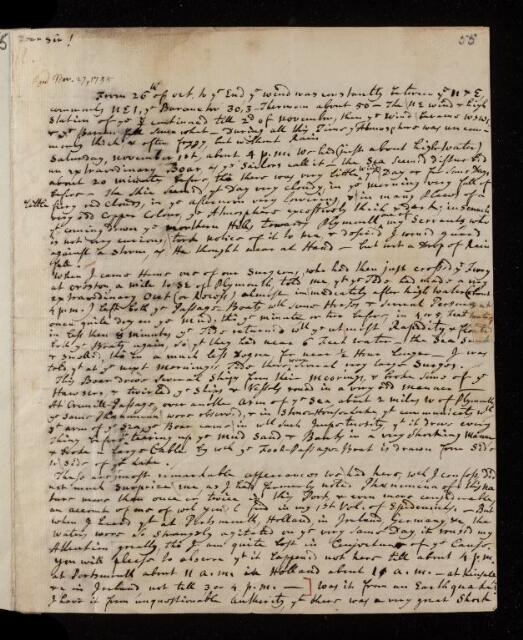 Dear Sir!
55
Read Nov. 27, 1755
From 26th of oct. to ye End ye wind was constantly between ye N & E,
commonly NE1, ye Barometer 30,3 - Thermom about 50 - The NE wind & high
Station of ye continued till 2d of november, then ye Wind became WSW,
& ye Barom fell somewhat - During all this Time, ye Atmosphere was uncom
monly thick & often foggy, but without Rain
Saturday, november 1st, about 4 p.m. we had (just about high-water)
an extraordinary Boar, as ye Sailors call it - the Sea seemed disturbed
about 20 minutes before, tho there was very little wind ye Day or for some Days
before - The Skie seemed ye Day very cloudy, in ye morning very full of
little fiery red clouds, in ye afternoon very lowering & in many Places of a
very odd Copper Colour, ye Atmosphere excessively thick & dark; insomuch
yt coming down ye northern Hills towards Plymouth one of my Servants, who
is not very curious, took notice of it to me & desired I would guard
against a storm, as He thought near at Hand - but not a Drop of Rain
fell
When I came Home one of our Surgeons, who had then just crossed ye Ferry
at Creston, a mile to SE of Plymouth, told me yt ye Tide had made a very
extraordinary Out (or Recess) almost immediately after high water (about
4 p.m.) left both ye Passage-Boats with some Horses & several Persons at
once quite dry in ye Mud, tho ye minute or two before, in 4 or 5 feet water
in less than 8 minutes ye Tide returned with ye utmost Rapidity & floated
both ye Boats again, so yt they had near 6 Feet water - the Sea sunk
& swelled, tho in a much less Degree, for near ½ Hour longer - I was
told yt at ye next morning's Tide there were several very large Surges.
This Boar drove several Ships from their moorings, & broke some of ye
Hawsers, & twirled ye Ships & Vessels round in a very odd manner -
At Crunill-Passage, over another Arm of ye Sea about 2 miles W of Plymouth,
ye same Phaenomena were observed, & in Stonehouse-Lake yt communicates with
yt arm of ye Sea ye Boar came in with such Impetuosity, yt it drove every
Thing before it, tearing up ye mud Sand & Banks in a very shocking Manner
& broke a large Cable by wch ye Foot-Passage-Boat is drawn from Side
to Side of ye Lake.
These are most remarkable appearances we had here, wch I confess did
not much surprize me, as I had formerly noted Phaenomena of this na
ture more than once or twice in this Port, & even more considerable
an account of one of wch you'l find in my 1st Vol. of Epidemicks. - But
when I heard yt at Portsmouth, Holland in Ireland, Germany &c the
Waters were so strangely agitated on ye very same Day it roused my
Attention greatly, tho I am quite lost in Conjecture as to ye Cause
You will please to observe yt it happened not here till about 4 p.m.
at Portsmouth about 11 a.m. in Holland about 11 a.m. - at Kinsale
&c in Ireland not till 3 or 4 p.m. - ] Was it from an Earthquake?
I have it from unquestionable Authority yt there was a very great Shock